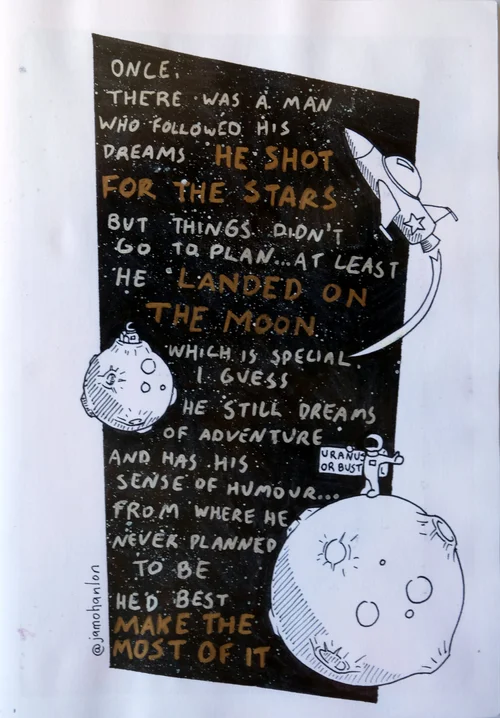 ONCE,
THERE WAS A MAN
WHO FOLLOWED HIS
DREAMS HE SHOT
FOR THE STARS
BUT THINGS DIDN'T
GO TO PLAN...AT LEAST
HE LANDED ON
THE MOON
WHICH IS SPECIAL
I GUESS
HE STILL DREAMS
OF ADVENTURE
AND HAS HIS
SENSE OF HUMOUR...
URANUS
OR BUST
FROM WHERE HE
NEVER PLANNED
TO BE
HE'D BEST
MAKE THE
MOST OF IT
@jamohanlon